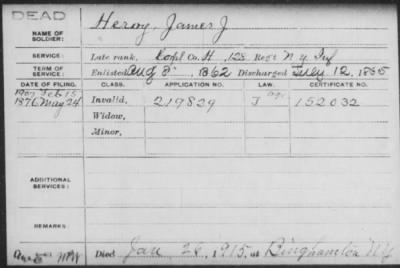 DEAD
NAME OF SOLDIER: Heroy, James J.
SERVICE: Late rank, Corpl Co. H, 128 Reg't N.Y. Inf
TERM OF SERVICE: Enlisted Aug 8, 1862 Discharged July 12, 1865
DATE OF FILING. CLASS. APPLICATION NO. LAW. CERTIFICATE NO.
1907 Feb 15
1876 May 24 Invalid, 219829 J 152032
Widow,
Minor,
ADDITIONAL SERVICES:
REMARKS:
Died Jan 26, 1915, at Binghamton NY